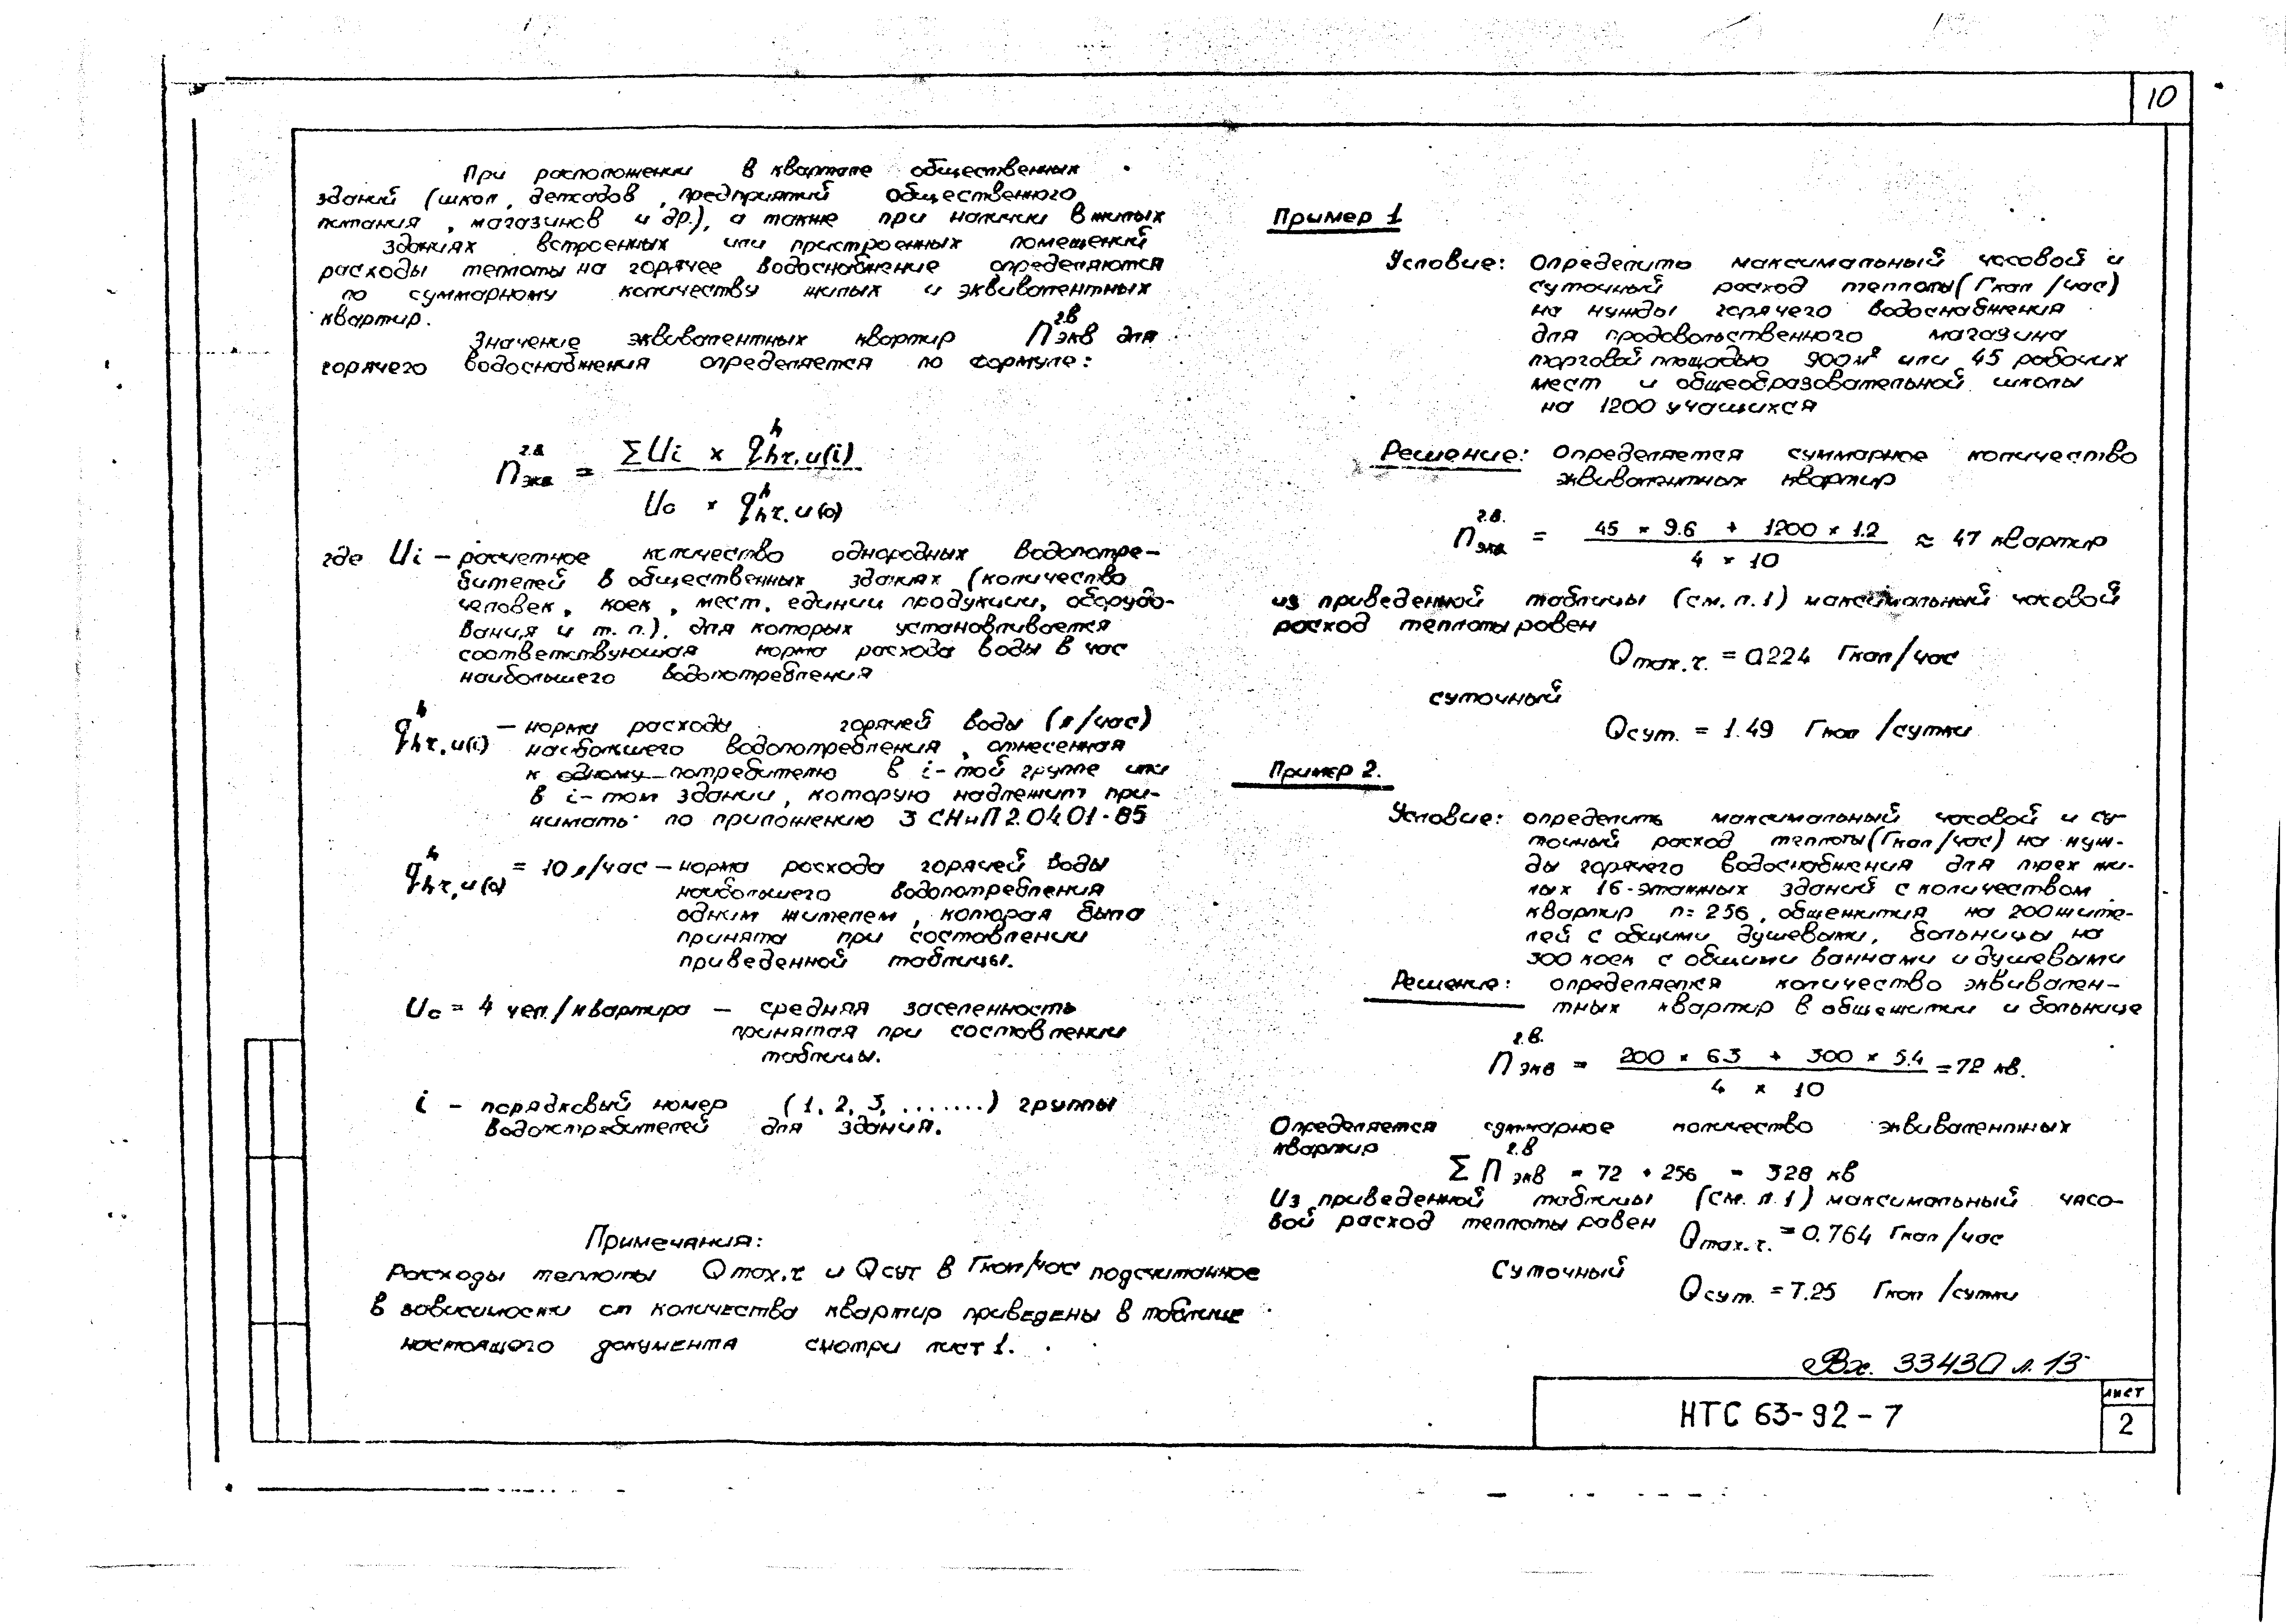 10
При расположении в квартале общественных
зданий (школ, детсадов, предприятий общественного
питания, магазинов и др.), а также при наличии в жилых
зданиях встроенных или пристроенных помещений
расходы теплоты на горячее водоснабжение определяются
по суммарному количеству жилых и эквивалентных
квартир.
Значение эквивалентных квартир Пэкв г.в для
горячего водоснабжения определяется по формуле:
Пэкв г.в. = ΣUi × q h hr,u(i) / Uo × q h hr,u(o)
где Ui – расчетное количество однородных водопотре-
бителей в общественных зданиях (количество
человек, коек, мест, единиц продукции, оборудо-
вания и т.п.), для которых устанавливается
соответствующая норма расхода воды в час
наибольшего водопотребления
q h hr,u(i) – норма расхода горячей воды (л/час)
наибольшего водопотребления, отнесенная
к одному потребителю в i-той группе или
в i-том здании, которую надлежит при-
нимать по приложению 3 СНиП 2.04.01-85
q h hr,u(o) = 10 л/час – норма расхода горячей воды
наибольшего водопотребления
одним жителем, которая была
принята при составлении
приведенной таблицы.
Uo = 4 чел./квартира – средняя заселенность
принятая при составлении
таблицы.
i – порядковый номер (1, 2, 3, .......) группы
водопотребителей для здания.
Примечания:
Расходы теплоты Qmax.ч и Qсут в Гкал/час подсчитанное
в зависимости от количества квартир приведены в таблице
настоящего документа смотри лист 1.
Пример 1
Условие: Определить максимальный часовой и
суточный расход теплоты (Гкал/час)
на нужды горячего водоснабжения
для продовольственного магазина
торговой площадью 900 м² или 45 рабочих
мест и общеобразовательной школы
на 1200 учащихся
Решение: Определяется суммарное количество
эквивалентных квартир
Пэкв г.в. = 45 × 9.6 + 1200 × 1.2 / 4 × 10 ≈ 47 квартир
из приведенной таблицы (см. л.1) максимальный часовой
расход теплоты равен
Qmax.ч. = 0.224 Гкал/час
суточный
Qсут. = 1.49 Гкал/сутки
Пример 2.
Условие: определить максимальный часовой и су-
точный расход теплоты (Гкал/час) на нуж-
ды горячего водоснабжения для трех жи-
лых 16-этажных зданий с количеством
квартир n = 256, общежития на 200 жите-
лей с общими душевыми, больницы на
300 коек с общими ваннами и душевыми
Решение: определяется количество эквивален-
тных квартир в общежитии и больнице
Пэкв г.в. = 200 × 6.3 + 300 × 5.4 / 4 × 10 = 72 кв.
Определяется суммарное количество эквивалентных
квартир
ΣПэкв г.в = 72 + 256 = 328 кв
Из приведенной таблицы (см. л.1) максимальный часо-
вой расход теплоты равен Qmax.ч. = 0.764 Гкал/час
Суточный
Qсут. = 7.25 Гкал/сутки
Вх. 33430 л. 13
НТС 63-92-7
лист
2